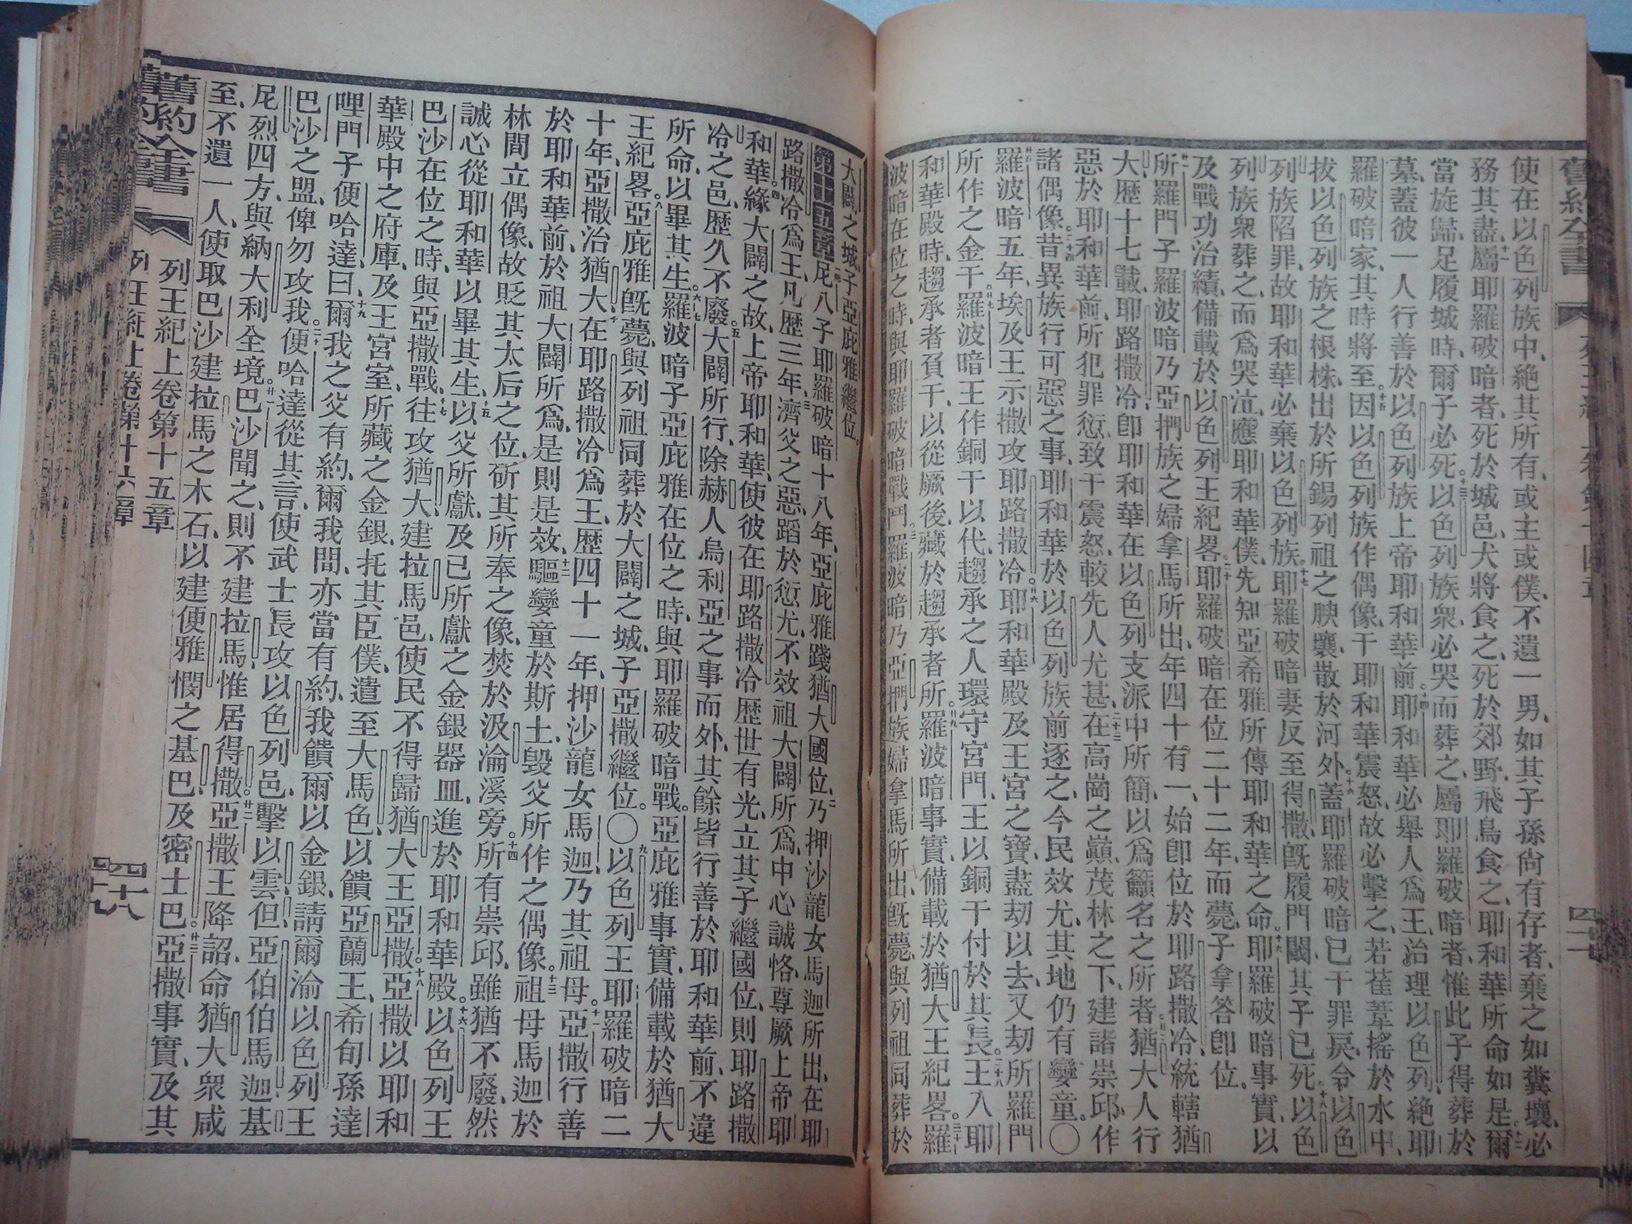 舊約全書
列王紀上卷第十四章
四十七
使在以色列族中、絕其所有、或主或僕、不遺一男、如其子孫尙有存者、棄之如糞壤、必
務其盡、屬耶羅破暗者、死於城邑、犬將食之、死於郊野、飛鳥食之、耶和華所命如是、爾
當旋歸、足履城時、爾子必死、以色列族衆、必哭而葬之、屬耶羅破暗者、惟此子得葬於
墓、蓋彼一人行善於以色列族上帝耶和華前、耶和華必舉人爲王、治理以色列、絕耶
羅破暗家、其時將至、因以色列族作偶像、干耶和華震怒、故必擊之、若萑葦搖於水中、
拔以色列族之根株、出於所錫列祖之腴壤、散於河外、蓋耶羅破暗已干罪戾、令以色
列族陷罪、故耶和華必棄以色列族、耶羅破暗妻反至得撒、旣履門闑、其子已死、以色
列族衆葬之、而爲哭泣、應耶和華僕、先知亞希雅所傳耶和華之命、耶羅破暗事實、以
及戰功治績、備載於以色列王紀畧、耶羅破暗在位二十二年而薨、子拿答卽位、
所羅門子羅波暗、乃亞捫族之婦拿馬所出、年四十有一、始卽位於耶路撒冷、統轄猶
大、歷十七載、耶路撒冷卽耶和華在以色列支派中所簡、以爲籲名之所者、猶大人行
惡於耶和華前、所犯罪愆、致干震怒、較先人尤甚、在高崗之巓、茂林之下、建諸崇邱、作
諸偶像、昔異族行可惡之事、耶和華於以色列族前逐之、今民效尤、其地仍有孌童、〇
羅波暗五年、埃及王示撒攻耶路撒冷、耶和華殿及王宮之寶、盡劫以去、又劫所羅門
所作之金干、羅波暗王作銅干以代、趨承之人、環守宮門、王以銅干付於其長、王入耶
和華殿時、趨承者負干、以從厥後、藏於趨承者所、羅波暗事實、備載於猶大王紀畧、羅
波暗在位之時、與耶羅破暗戰鬥、羅波暗乃亞捫族婦拿馬所出、旣薨、與列祖同葬於
大闢之城、子亞庇雅繼位。
第十五章 尼八子耶羅破暗十八年、亞庇雅踐猶大國位、乃押沙龍女馬迦所出、在耶
路撒冷爲王、凡歷三年、濟父之惡、蹈於愆尤、不效祖大闢所爲、中心誠恪、尊厥上帝耶
和華、緣大闢之故、上帝耶和華、使彼在耶路撒冷歷世有光、立其子繼國位、則耶路撒
冷之邑、歷久不廢、大闢所行、除赫人烏利亞之事而外、其餘皆行善於耶和華前、不違
所命、以畢其生、羅波暗子亞庇雅在位之時、與耶羅破暗戰、亞庇雅事實、備載於猶大
王紀畧、亞庇雅旣薨、與列祖同葬於大闢之城、子亞撒繼位、〇以色列王耶羅破暗二
十年、亞撒治猶大、在耶路撒冷爲王、歷四十一年、押沙龍女馬迦乃其祖母、亞撒行善
於耶和華前、於祖大闢所爲、是則是效、驅孌童於斯土、毀父所作之偶像、祖母馬迦於
林間立偶像、故貶其太后之位、斫其所奉之像、焚於汲淪溪旁、所有崇邱、雖猶不廢、然
誠心從耶和華、以畢其生、以父所獻、及已所獻之金銀器皿、進於耶和華殿、以色列王
巴沙在位之時、與亞撒戰、往攻猶大、建拉馬邑、使民不得歸猶大王亞撒、亞撒以耶和
華殿中之府庫、及王宮室所藏之金銀、托其臣僕、遣至大馬色、以饋亞蘭王、希旬孫、達
哩門子便哈達、曰、爾我之父有約、爾我間亦當有約、我饋爾以金銀、請爾渝以色列王
巴沙之盟、俾勿攻我、便哈達從其言、使武士長攻以色列邑、擊以雲、但、亞伯伯馬迦、基
尼烈四方、與納大利全境、巴沙聞之、則不建拉馬、惟居得撒、亞撒王降詔、命猶大衆咸
至、不遺一人、使取巴沙建拉馬之木石、以建便雅憫之基巴、及密士巴、亞撒事實、及其
舊約全書
列王紀上卷第十五章
四十八
列王紀上卷第十六章